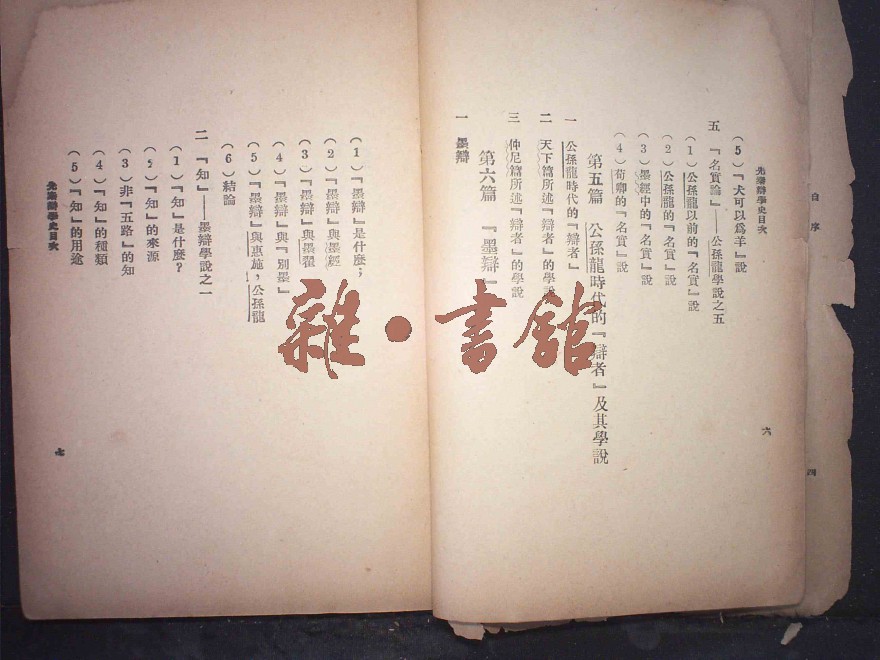 自序
四
先秦辯學史目次
六
(5)『犬可以爲羊』說
五 『名實論』——公孫龍學說之五
(1)公孫龍以前的『名實』說
(2)公孫龍的『名實』說
(3)墨經中的『名實』說
(4)荀卿的『名實』說
第五篇 公孫龍時代的『辯者』及其學說
一 公孫龍時代的『辯者』
二 天下篇所述『辯者』的學說
三 仲尼篇所述『辯者』的學說
第六篇 『墨辯』
一 墨辯
(1)『墨辯』是什麼;
(2)『墨辯』與墨經
(3)『墨辯』與墨翟
(4)『墨辯』與『別墨』
(5)『墨辯』與惠施,公孫龍
(6)結論
二 『知』——墨辯學說之一
(1)『知』是什麼?
(2)『知』的來源
(3)非『五路』的知
(4)『知』的種類
(5)『知』的用途
先秦辯學史目次
七
雜·書館